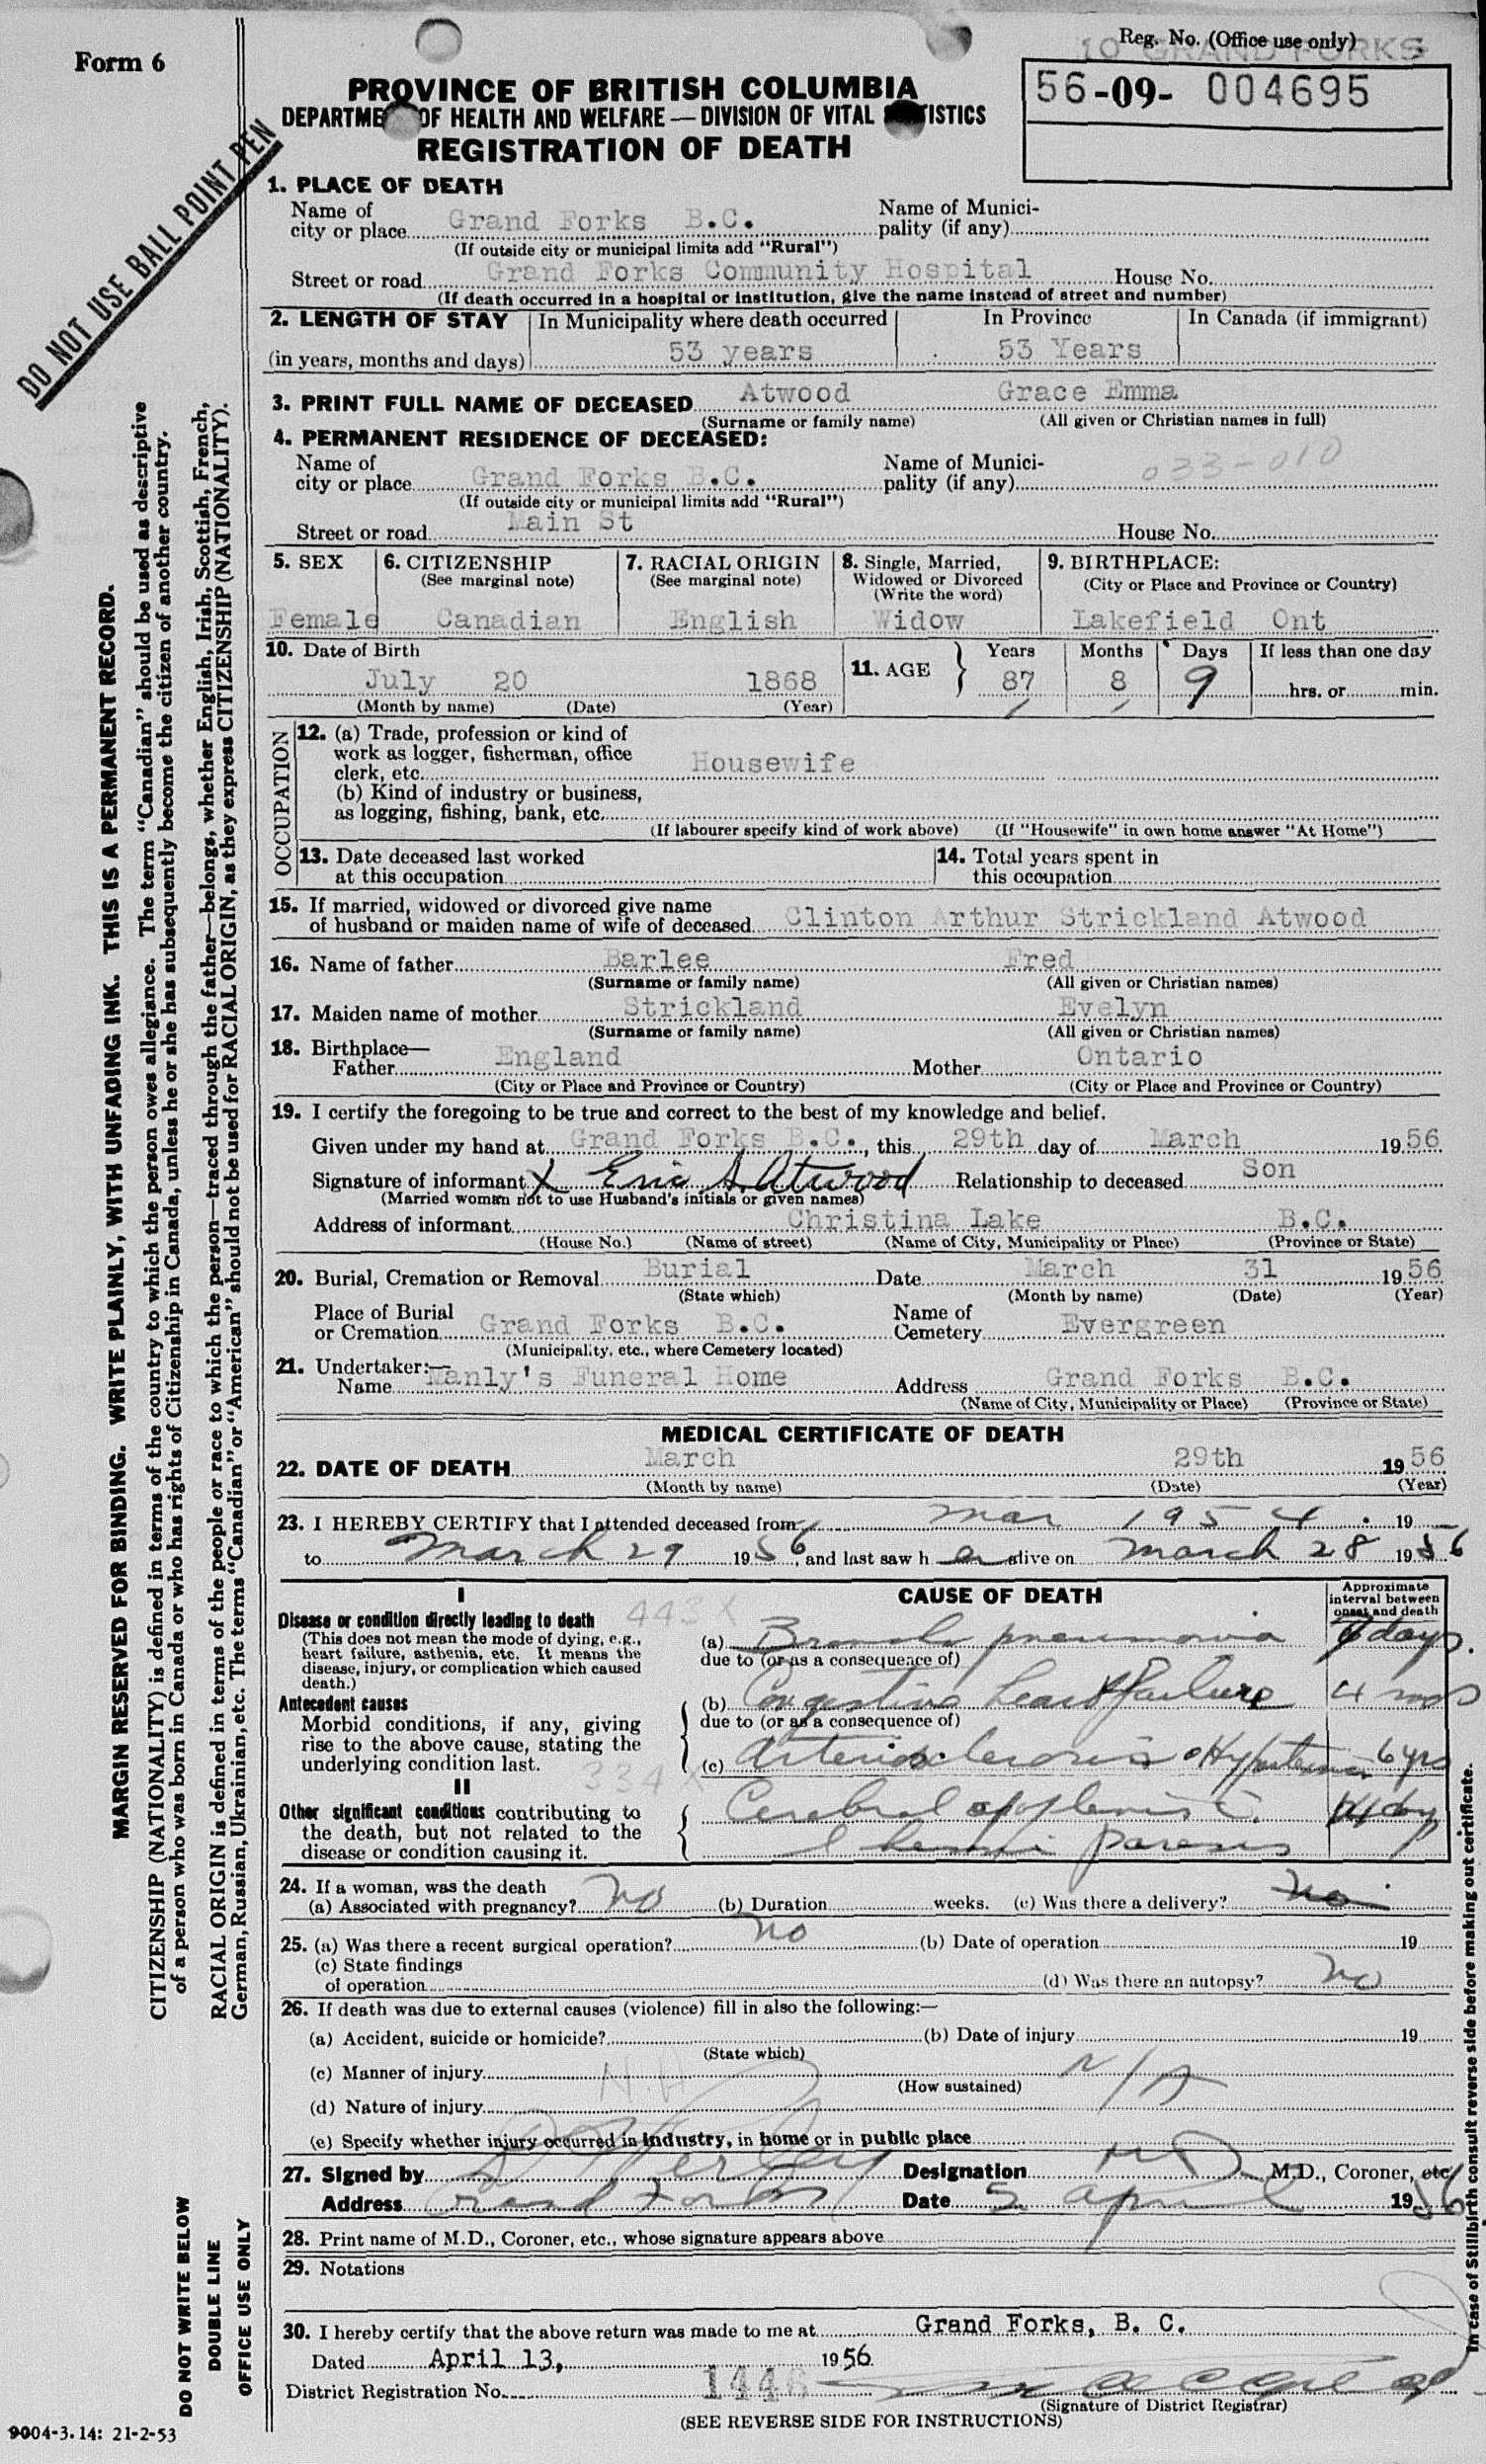 Form 6
Reg. No. (Office use only)
10 GRAND FORKS
56-09- 004695
PROVINCE OF BRITISH COLUMBIA
DEPARTME OF HEALTH AND WELFARE — DIVISION OF VITAL TISTICS
REGISTRATION OF DEATH
DO NOT USE BALL POINT PEN
1. PLACE OF DEATH
Name of city or place Grand Forks B.C. Name of Municipality (if any)
(If outside city or municipal limits add "Rural")
Street or road Grand Forks Community Hospital House No.
(If death occurred in a hospital or institution, give the name instead of street and number)
2. LENGTH OF STAY In Municipality where death occurred In Province In Canada (if immigrant)
(in years, months and days) 53 years 53 Years
3. PRINT FULL NAME OF DECEASED Atwood Grace Emma
(Surname or family name) (All given or Christian names in full)
4. PERMANENT RESIDENCE OF DECEASED:
Name of city or place Grand Forks B.C. Name of Municipality (if any) 033-010
(If outside city or municipal limits add "Rural")
Street or road Main St House No.
5. SEX 6. CITIZENSHIP 7. RACIAL ORIGIN 8. Single, Married, Widowed or Divorced 9. BIRTHPLACE:
(See marginal note) (See marginal note) (Write the word) (City or Place and Province or Country)
Female Canadian English Widow Lakefield Ont
10. Date of Birth 11. AGE Years Months Days If less than one day
July 20 1868 87 8 9 hrs. or min.
(Month by name) (Date) (Year)
OCCUPATION
12. (a) Trade, profession or kind of
work as logger, fisherman, office
clerk, etc. Housewife
(b) Kind of industry or business,
as logging, fishing, bank, etc.
(If labourer specify kind of work above) (If "Housewife" in own home answer "At Home")
13. Date deceased last worked at this occupation 14. Total years spent in this occupation
15. If married, widowed or divorced give name
of husband or maiden name of wife of deceased Clinton Arthur Strickland Atwood
16. Name of father Barlee Fred
(Surname or family name) (All given or Christian names)
17. Maiden name of mother Strickland Evelyn
(Surname or family name) (All given or Christian names)
18. Birthplace—
Father England Mother Ontario
(City or Place and Province or Country) (City or Place and Province or Country)
19. I certify the foregoing to be true and correct to the best of my knowledge and belief.
Given under my hand at Grand Forks B.C., this 29th day of March 1956
Signature of informant X Eric S. Atwood Relationship to deceased Son
(Married woman not to use Husband's initials or given names)
Address of informant Christina Lake B.C.
(House No.) (Name of street) (Name of City, Municipality or Place) (Province or State)
20. Burial, Cremation or Removal Burial Date March 31 1956
(State which) (Month by name) (Date) (Year)
Place of Burial or Cremation Grand Forks B.C. Name of Cemetery Evergreen
(Municipality, etc., where Cemetery located)
21. Undertaker:—
Name Manly's Funeral Home Address Grand Forks B.C.
(Name of City, Municipality or Place) (Province or State)
MEDICAL CERTIFICATE OF DEATH
22. DATE OF DEATH March 29th 1956
(Month by name) (Date) (Year)
23. I HEREBY CERTIFY that I attended deceased from Mar 1954 19
to March 29 1956, and last saw h er alive on March 28 1956
I CAUSE OF DEATH Approximate interval between onset and death
Disease or condition directly leading to death 443X
(This does not mean the mode of dying, e.g.,
heart failure, asthenia, etc. It means the
disease, injury, or complication which caused
death.)
(a) Broncho pneumonia days.
due to (or as a consequence of)
Antecedent causes
Morbid conditions, if any, giving
rise to the above cause, stating the
underlying condition last.
(b) Congestive heart failure 4 mos
due to (or as a consequence of)
(c) Arteriosclerosis Hypertension 6 yrs
334X
II
Other significant conditions contributing to
the death, but not related to the
disease or condition causing it.
Cerebral c.
hemi paresis
24. If a woman, was the death
(a) Associated with pregnancy? no (b) Duration weeks. (c) Was there a delivery? no
25. (a) Was there a recent surgical operation? no (b) Date of operation 19
(c) State findings
of operation (d) Was there an autopsy? no
26. If death was due to external causes (violence) fill in also the following:—
(a) Accident, suicide or homicide? (b) Date of injury 19
(State which)
(c) Manner of injury N/A
(How sustained)
(d) Nature of injury
(e) Specify whether injury occurred in industry, in home or in public place
27. Signed by Designation MD M.D., Coroner, etc.
Address Grand Forks Date 5 April 1956
28. Print name of M.D., Coroner, etc., whose signature appears above
29. Notations
30. I hereby certify that the above return was made to me at Grand Forks, B. C.
Dated April 13, 1956
District Registration No. 1446
(Signature of District Registrar)
(SEE REVERSE SIDE FOR INSTRUCTIONS)
MARGIN RESERVED FOR BINDING. WRITE PLAINLY, WITH UNFADING INK. THIS IS A PERMANENT RECORD.
CITIZENSHIP (NATIONALITY) is defined in terms of the country to which the person owes allegiance. The term "Canadian" should be used as descriptive
of a person who was born in Canada or who has rights of Citizenship in Canada, unless he or she has subsequently become the citizen of another country.
RACIAL ORIGIN is defined in terms of the people or race to which the person—traced through the father—belongs, whether English, Irish, Scottish, French,
German, Russian, Ukrainian, etc. The terms "Canadian" or "American" should not be used for RACIAL ORIGIN, as they express CITIZENSHIP (NATIONALITY).
DO NOT WRITE BELOW
DOUBLE LINE
OFFICE USE ONLY
In case of Stillbirth consult reverse side before making out certificate.
9004-3.14: 21-2-53